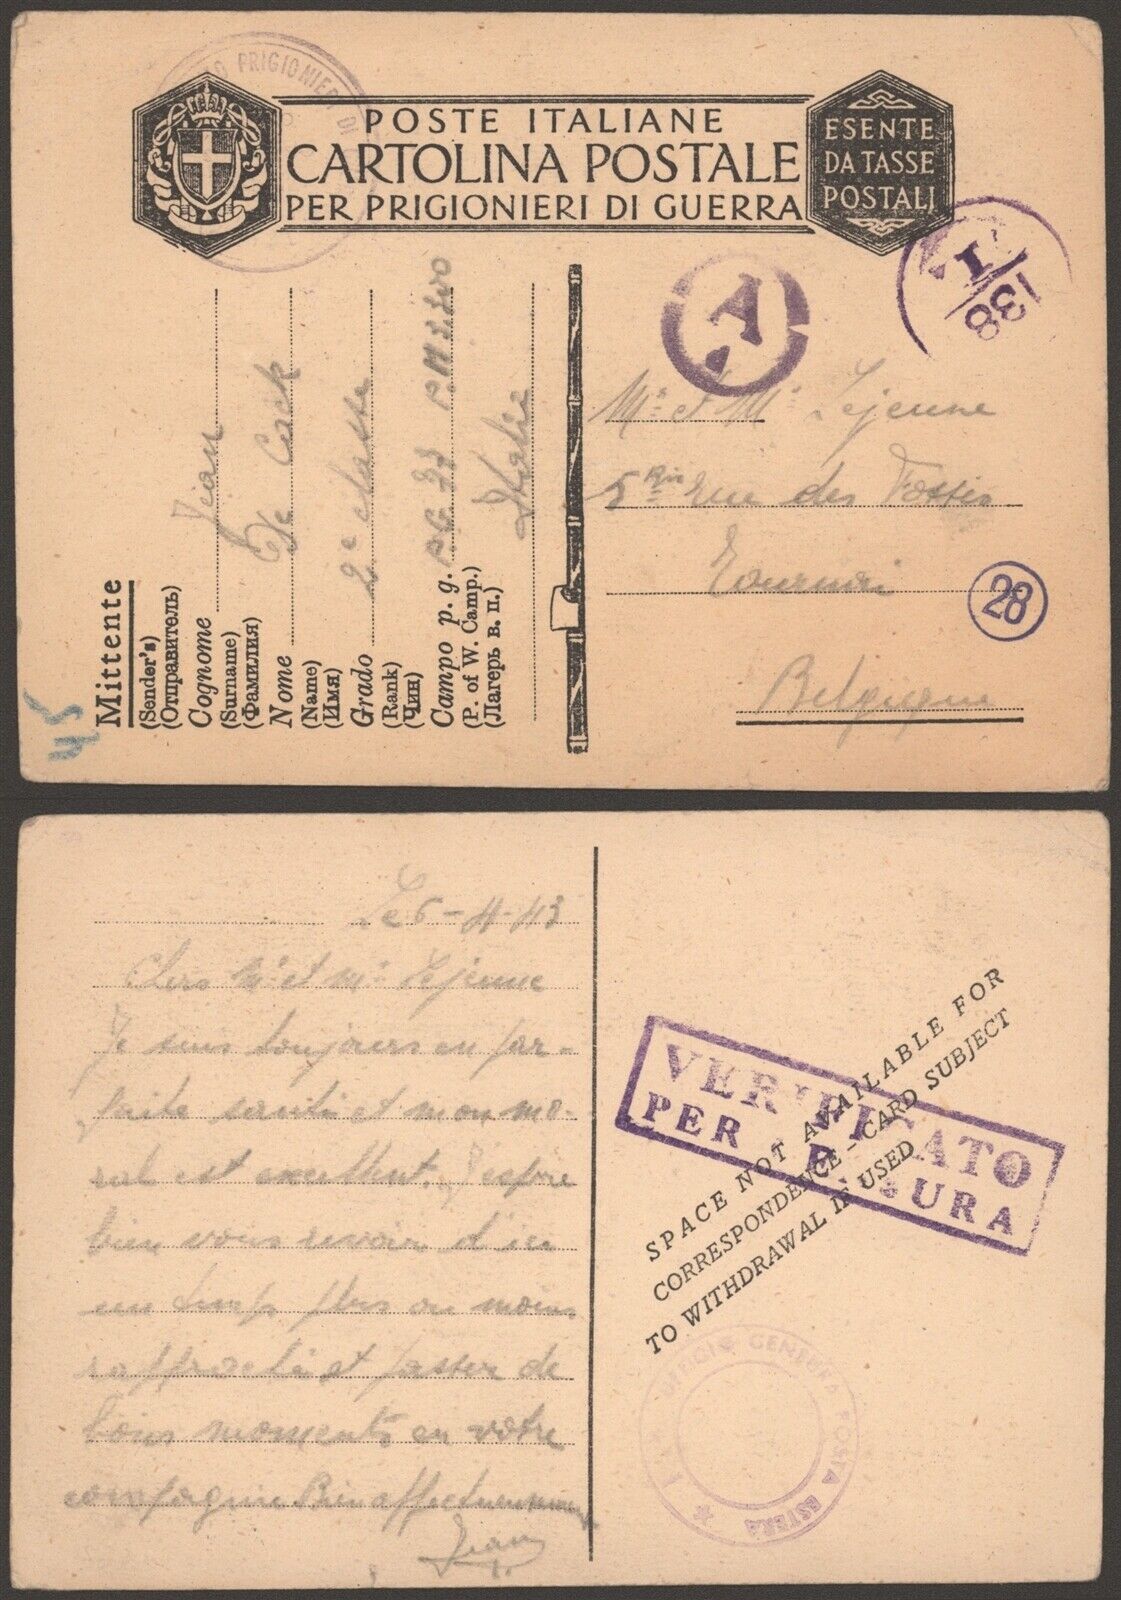 PRIGIONIERI DI
POSTE ITALIANE
CARTOLINA POSTALE
PER PRIGIONIERI DI GUERRA
ESENTE
DA TASSE
POSTALI
A
138
I
Mittente
(Sender's)
(Отправитель)
Cognome Jean
(Surname)
(Фамилия) De Cock
Nome
(Name)
(Имя)
Grado 2e classe
(Rank)
(Чин)
Campo p. g. P.G 33 P.M 3200
(P. of W. Camp.)
(Лагерь в. п.)
Italie
45
Mr et Me Lejeune
5 Bis rue des Fossés
Tournai
28
Belgique
Le 6-4-43
Chers Mr et Me Lejeune
Je suis toujours en par-
faite santé et mon mo-
ral est excellent. J'espère
bien vous revoir d'ici
un temps plus ou moins
rapproché et passer de
bons moments en votre
compagnie Bien affectueusement
Jean
SPACE NOT AVAILABLE FOR
CORRESPONDENCE - CARD SUBJECT
TO WITHDRAWAL IF USED
VERIFICATO
PER CENSURA
UFFICIO CENSURA POSTA ESTERA